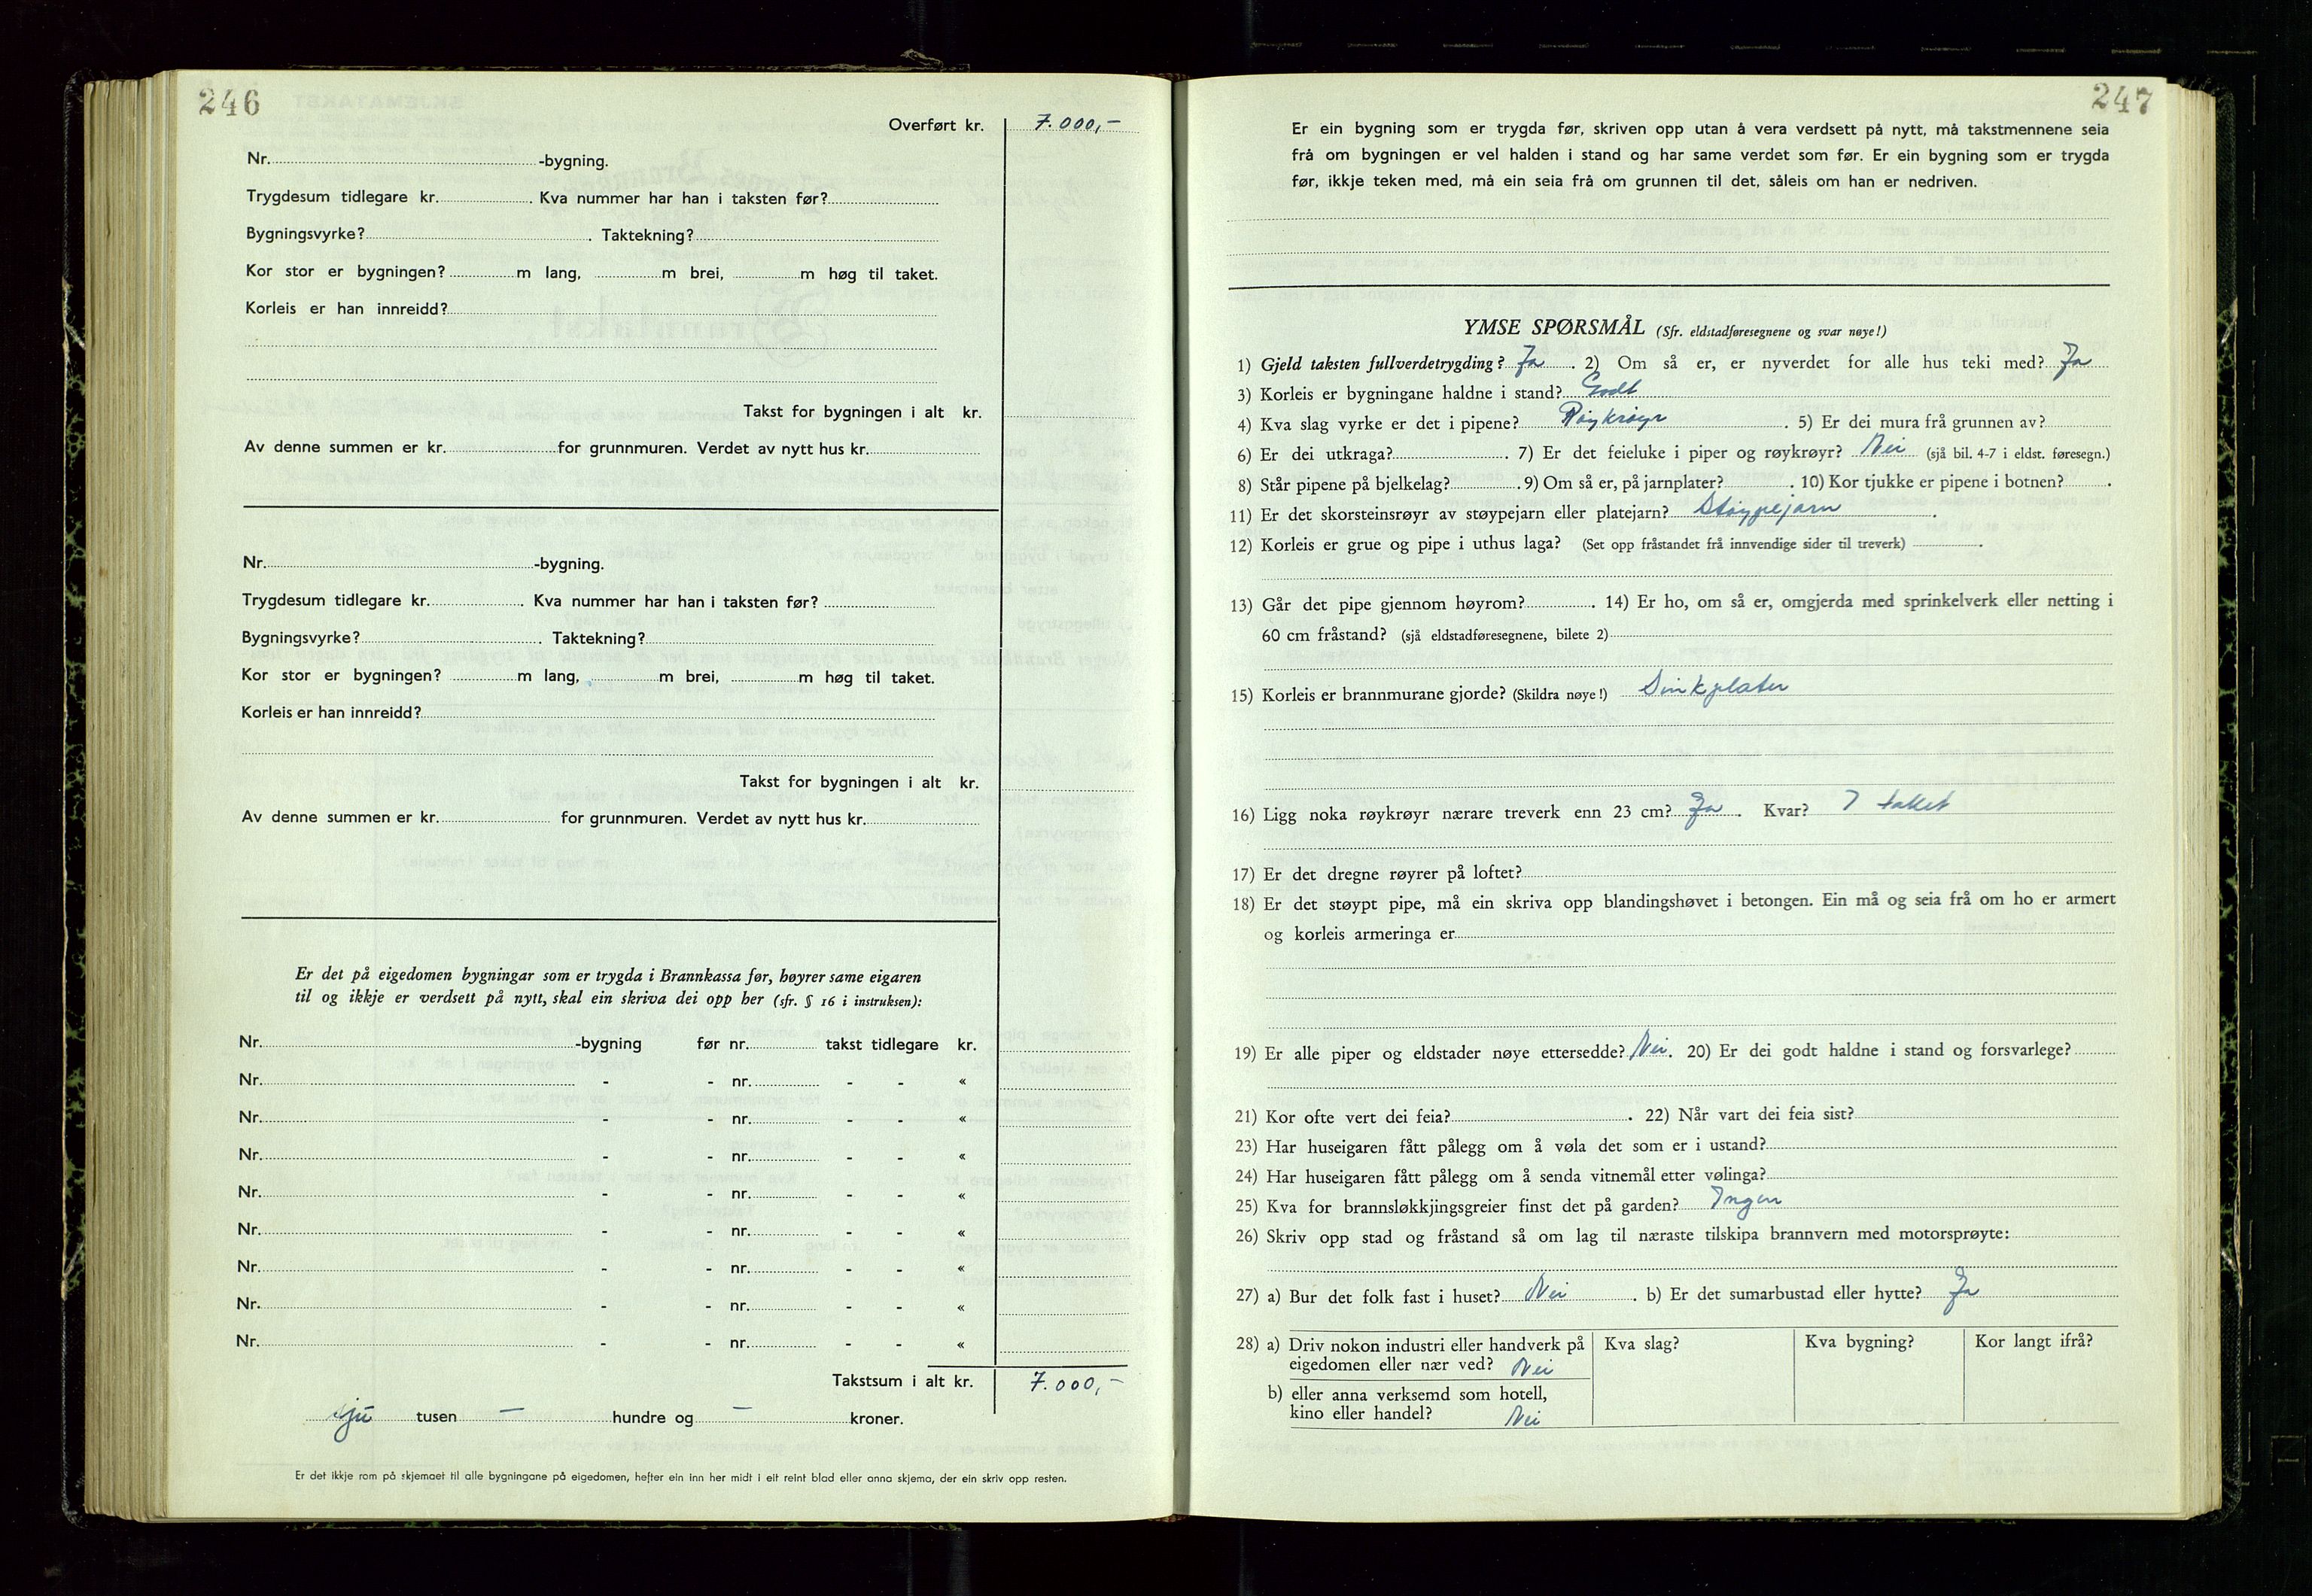 246
Overført kr. 7.000,-
Nr. -bygning.
Trygdesum tidlegare kr. . Kva nummer har han i taksten før?
Bygningsvyrke? . Taktekning?
Kor stor er bygningen? m lang, m brei, m høg til taket.
Korleis er han innreidd?
Takst for bygningen i alt kr.
Av denne summen er kr. for grunnmuren. Verdet av nytt hus kr.
Nr. -bygning.
Trygdesum tidlegare kr. . Kva nummer har han i taksten før?
Bygningsvyrke? . Taktekning?
Kor stor er bygningen? m lang, m brei, m høg til taket.
Korleis er han innreidd?
Takst for bygningen i alt kr.
Av denne summen er kr. for grunnmuren. Verdet av nytt hus kr.
Er det på eigedomen bygningar som er trygda i Brannkassa før, høyrer same eigaren
til og ikkje er verdsett på nytt, skal ein skriva dei opp her (sfr. § 16 i instruksen):
Nr. -bygning før nr. takst tidlegare kr.
Nr. - - nr. - - «
Nr. - - nr. - - «
Nr. - - nr. - - «
Nr. - - nr. - - «
Nr. - - nr. - - «
Nr. - - nr. - - «
Nr. - - nr. - - «
Nr. - - nr. - - «
Takstsum i alt kr. 7.000,-
sju tusen — hundre og — kroner.
Er det ikkje rom på skjemaet til alle bygningane på eigedomen, hefter ein inn her midt i eit reint blad eller anna skjema, der ein skriv opp resten.
247
Er ein bygning som er trygda før, skriven opp utan å vera verdsett på nytt, må takstmennene seia
frå om bygningen er vel halden i stand og har same verdet som før. Er ein bygning som er trygda
før, ikkje teken med, må ein seia frå om grunnen til det, såleis om han er nedriven.
YMSE SPØRSMÅL (Sfr. eldstadføresegnene og svar nøye!)
1) Gjeld taksten fullverdetrygding? Ja . 2) Om så er, er nyverdet for alle hus teki med? Ja
3) Korleis er bygningane haldne i stand? Godt
4) Kva slag vyrke er det i pipene? Røykrøyr . 5) Er dei mura frå grunnen av?
6) Er dei utkraga? . 7) Er det feieluke i piper og røykrøyr? Nei (sjå bil. 4-7 i eldst. føresegn.)
8) Står pipene på bjelkelag? . 9) Om så er, på jarnplater? . 10) Kor tjukke er pipene i botnen? .
11) Er det skorsteinsrøyr av støypejarn eller platejarn? Støypejarn .
12) Korleis er grue og pipe i uthus laga? (Set opp fråstandet frå innvendige sider til treverk) .
13) Går det pipe gjennom høyrom? . 14) Er ho, om så er, omgjerda med sprinkelverk eller netting i
60 cm fråstand? (sjå eldstadføresegnene, bilete 2)
15) Korleis er brannmurane gjorde? (Skildra nøye!) Sinkplater
16) Ligg noka røykrøyr nærare treverk enn 23 cm? Ja . Kvar? I taket
17) Er det dregne røyrer på loftet?
18) Er det støypt pipe, må ein skriva opp blandingshøvet i betongen. Ein må og seia frå om ho er armert
og korleis armeringa er
19) Er alle piper og eldstader nøye ettersedde? Nei. 20) Er dei godt haldne i stand og forsvarlege?
21) Kor ofte vert dei feia? . 22) Når vart dei feia sist?
23) Har huseigaren fått pålegg om å vøla det som er i ustand?
24) Har huseigaren fått pålegg om å senda vitnemål etter vølinga?
25) Kva for brannsløkkjingsgreier finst det på garden? Ingen
26) Skriv opp stad og fråstand så om lag til næraste tilskipa brannvern med motorsprøyte:
27) a) Bur det folk fast i huset? Nei . b) Er det sumarbustad eller hytte? Ja
28) a) Driv nokon industri eller handverk på Kva slag? Kva bygning? Kor langt ifrå?
eigedomen eller nær ved? Nei
b) eller anna verksemd som hotell,
kino eller handel? Nei